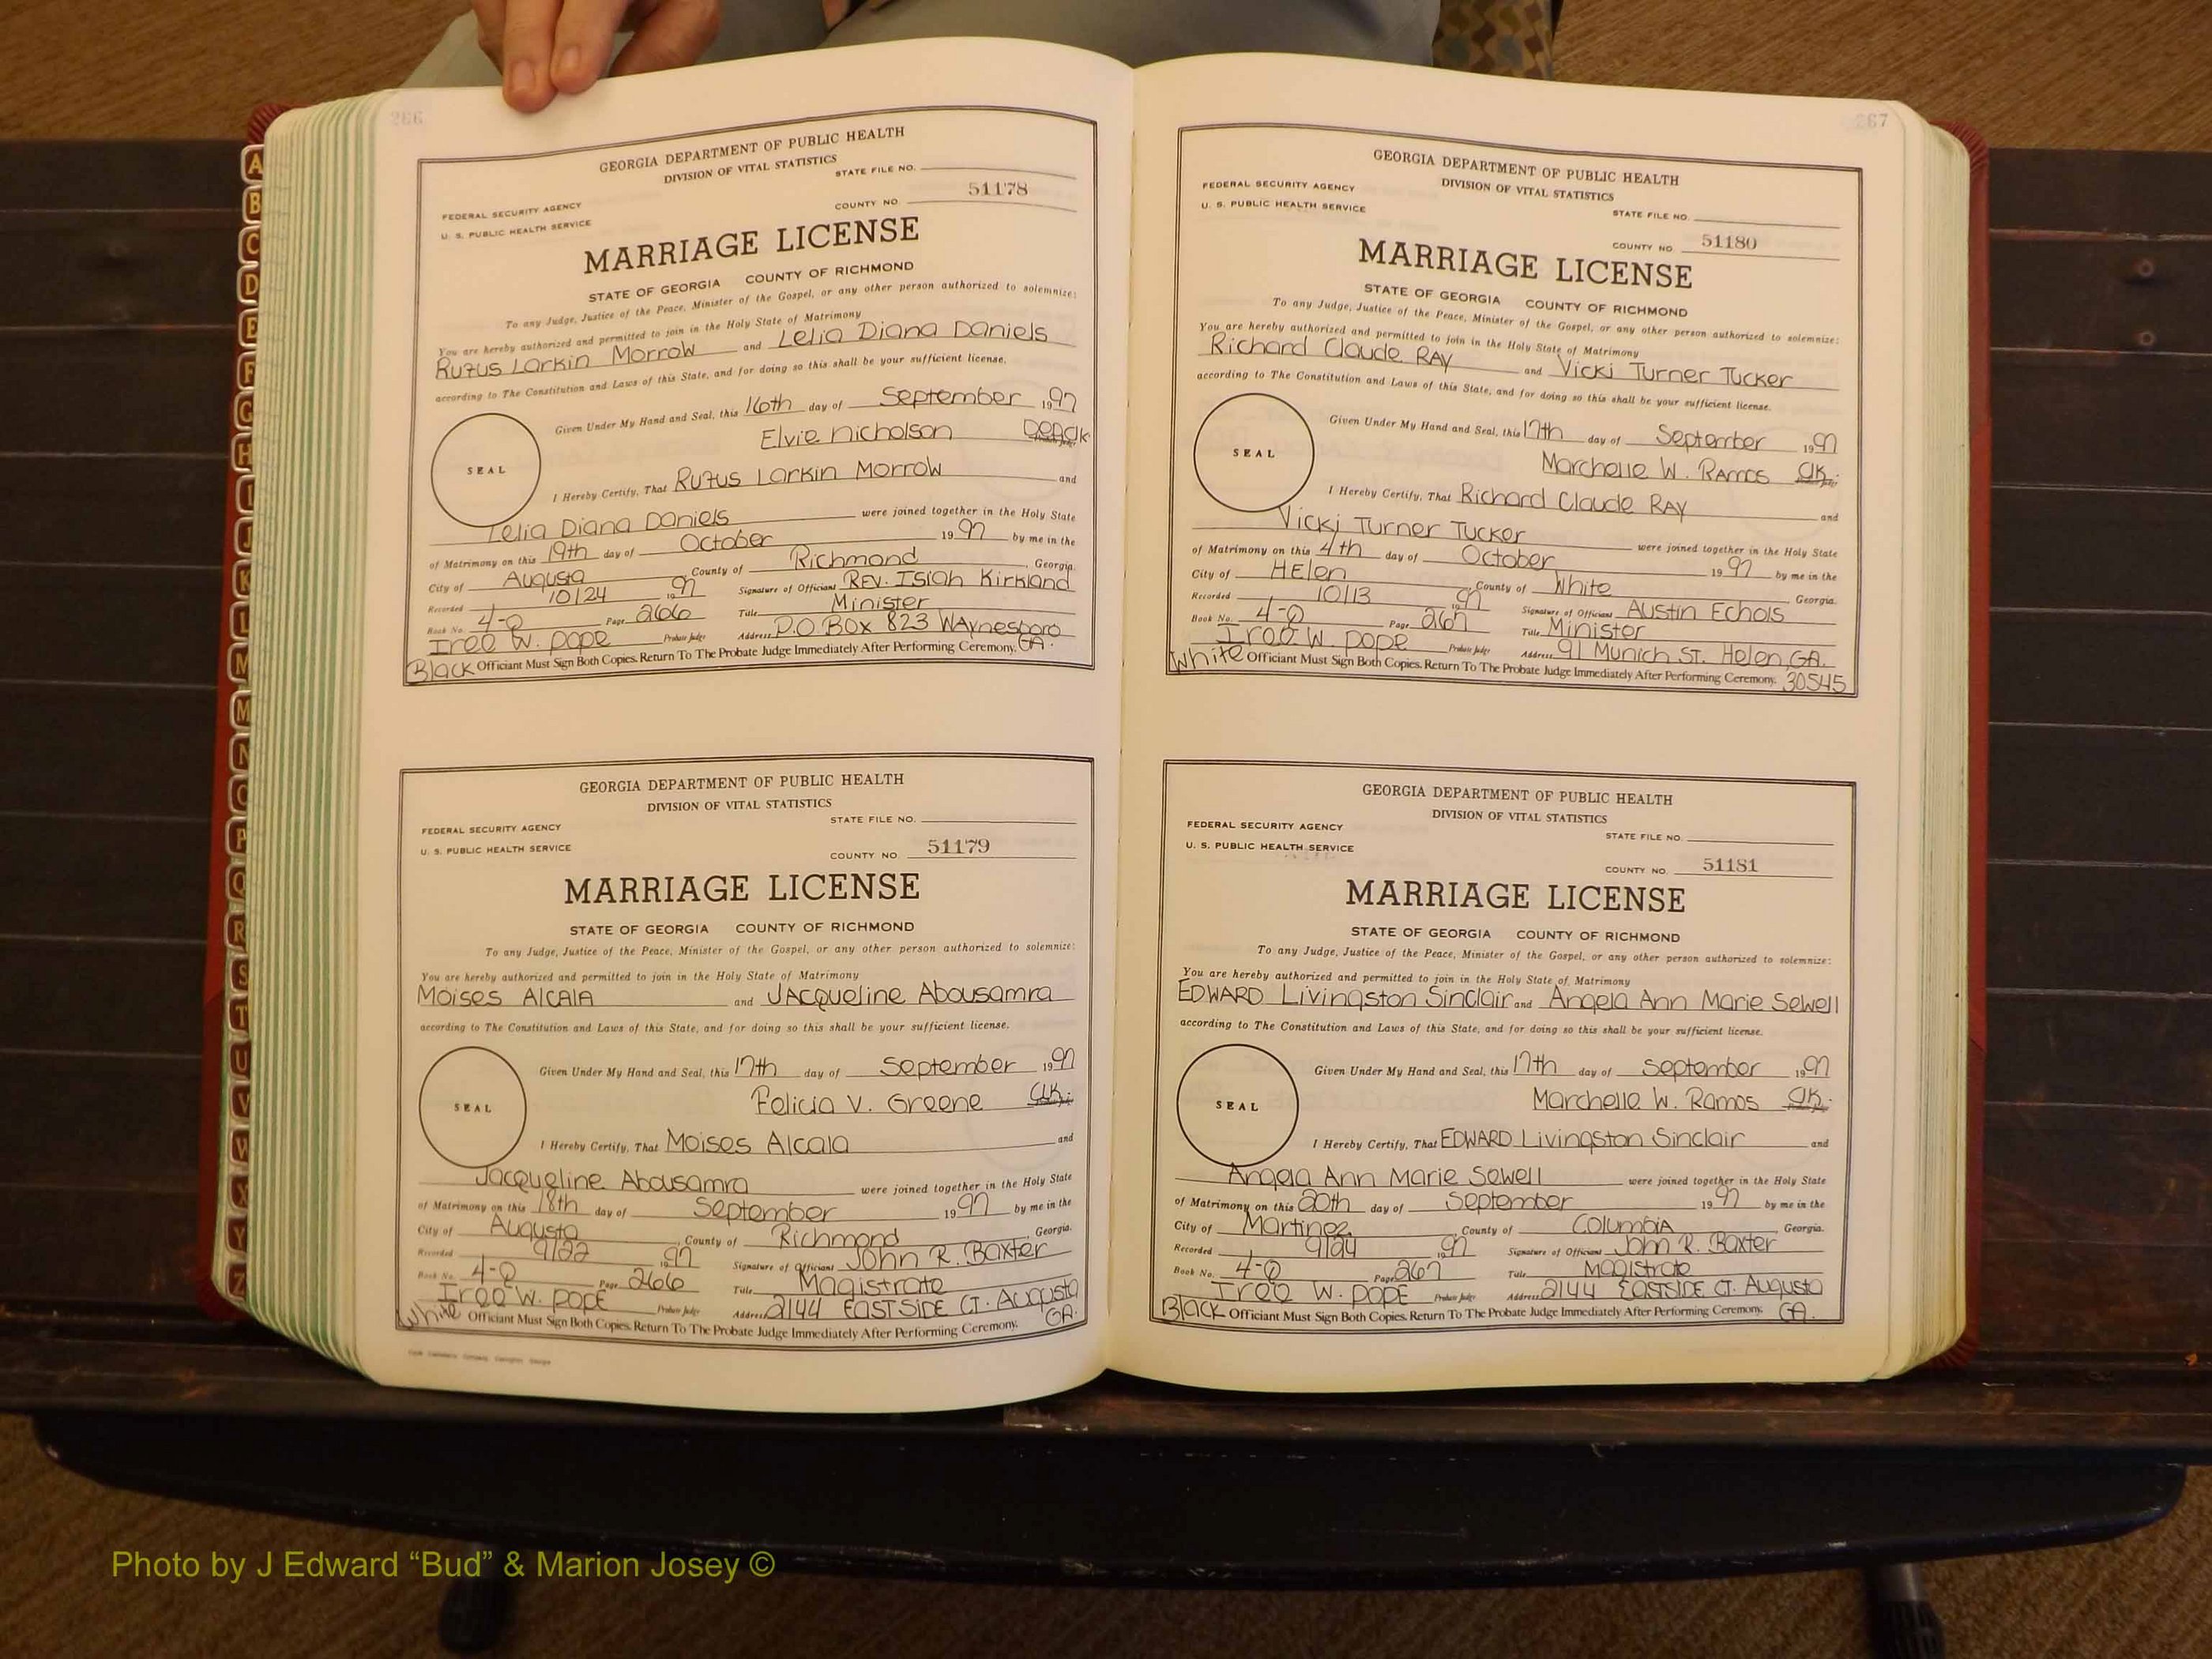 266
GEORGIA DEPARTMENT OF PUBLIC HEALTH
DIVISION OF VITAL STATISTICS
STATE FILE NO.
FEDERAL SECURITY AGENCY
U. S. PUBLIC HEALTH SERVICE
COUNTY NO. 51178
MARRIAGE LICENSE
STATE OF GEORGIA COUNTY OF RICHMOND
To any Judge, Justice of the Peace, Minister of the Gospel, or any other person authorized to solemnize:
You are hereby authorized and permitted to join in the Holy State of Matrimony
Rufus Larkin Morrow and Lelia Diana Daniels
according to The Constitution and Laws of this State, and for doing so this shall be your sufficient license.
Given Under My Hand and Seal, this 16th day of September 1997
Elvie Nicholson
SEAL
I Hereby Certify, That Rufus Larkin Morrow and
Lelia Diana Daniels were joined together in the Holy State
of Matrimony on this 19th day of October 1997 by me in the
City of Augusta County of Richmond, Georgia.
Recorded 10/24 1997 Signature of Officiant REV. Isiah Kirkland
Book No. 4-Q Page 266 Title Minister
Iree W. Pope Probate Judge Address P.O. Box 823 Waynesboro
Black Officiant Must Sign Both Copies. Return To The Probate Judge Immediately After Performing Ceremony. GA.
GEORGIA DEPARTMENT OF PUBLIC HEALTH
DIVISION OF VITAL STATISTICS
STATE FILE NO.
FEDERAL SECURITY AGENCY
U. S. PUBLIC HEALTH SERVICE
COUNTY NO. 51179
MARRIAGE LICENSE
STATE OF GEORGIA COUNTY OF RICHMOND
To any Judge, Justice of the Peace, Minister of the Gospel, or any other person authorized to solemnize:
You are hereby authorized and permitted to join in the Holy State of Matrimony
Moises Alcala and Jacqueline Abousamra
according to The Constitution and Laws of this State, and for doing so this shall be your sufficient license.
Given Under My Hand and Seal, this 17th day of September 1997
Felicia V. Greene Clk.
SEAL
I Hereby Certify, That Moises Alcala and
Jacqueline Abousamra were joined together in the Holy State
of Matrimony on this 18th day of September 1997 by me in the
City of Augusta, County of Richmond, Georgia.
Recorded 9/22 1997 Signature of Officiant John R. Baxter
Book No. 4-Q Page 266 Title Magistrate
Iree W. Pope Probate Judge Address 2144 EASTSIDE CT. Augusta
White Officiant Must Sign Both Copies. Return To The Probate Judge Immediately After Performing Ceremony. GA.
267
GEORGIA DEPARTMENT OF PUBLIC HEALTH
DIVISION OF VITAL STATISTICS
FEDERAL SECURITY AGENCY
U. S. PUBLIC HEALTH SERVICE
STATE FILE NO.
COUNTY NO. 51180
MARRIAGE LICENSE
STATE OF GEORGIA COUNTY OF RICHMOND
To any Judge, Justice of the Peace, Minister of the Gospel, or any other person authorized to solemnize:
You are hereby authorized and permitted to join in the Holy State of Matrimony
Richard Claude Ray and Vicki Turner Tucker
according to The Constitution and Laws of this State, and for doing so this shall be your sufficient license.
Given Under My Hand and Seal, this 17th day of September 1997
Marchelle W. Ramos Clk.
SEAL
I Hereby Certify, That Richard Claude Ray and
Vicki Turner Tucker were joined together in the Holy State
of Matrimony on this 4th day of October 1997 by me in the
City of Helen, County of White Georgia.
Recorded 10/13 1997 Signature of Officiant Austin Echols
Book No. 4-Q Page 267 Title Minister
Iree W. Pope Probate Judge Address 91 Munich St. Helen, GA.
White Officiant Must Sign Both Copies. Return To The Probate Judge Immediately After Performing Ceremony. 30545
GEORGIA DEPARTMENT OF PUBLIC HEALTH
DIVISION OF VITAL STATISTICS
FEDERAL SECURITY AGENCY
U. S. PUBLIC HEALTH SERVICE
STATE FILE NO.
COUNTY NO. 51181
MARRIAGE LICENSE
STATE OF GEORGIA COUNTY OF RICHMOND
To any Judge, Justice of the Peace, Minister of the Gospel, or any other person authorized to solemnize:
You are hereby authorized and permitted to join in the Holy State of Matrimony
EDWARD Livingston Sinclair and Angela Ann Marie Sewell
according to The Constitution and Laws of this State, and for doing so this shall be your sufficient license.
Given Under My Hand and Seal, this 17th day of September 1997
Marchelle W. Ramos Clk.
SEAL
I Hereby Certify, That EDWARD Livingston Sinclair and
Angela Ann Marie Sewell were joined together in the Holy State
of Matrimony on this 20th day of September 1997 by me in the
City of Martinez, County of Columbia Georgia.
Recorded 9/24 1997 Signature of Officiant John R. Baxter
Book No. 4-Q Page 267 Title Magistrate
Iree W. Pope Probate Judge Address 2144 EASTSIDE CT. Augusta
Black Officiant Must Sign Both Copies. Return To The Probate Judge Immediately After Performing Ceremony. GA.
A
B
C
D
E
F
G
H
I
J
K
L
M
M
N
O
P
Q
R
S
T
U
V
W
X
Y
Z
Photo by J Edward “Bud” & Marion Josey ©